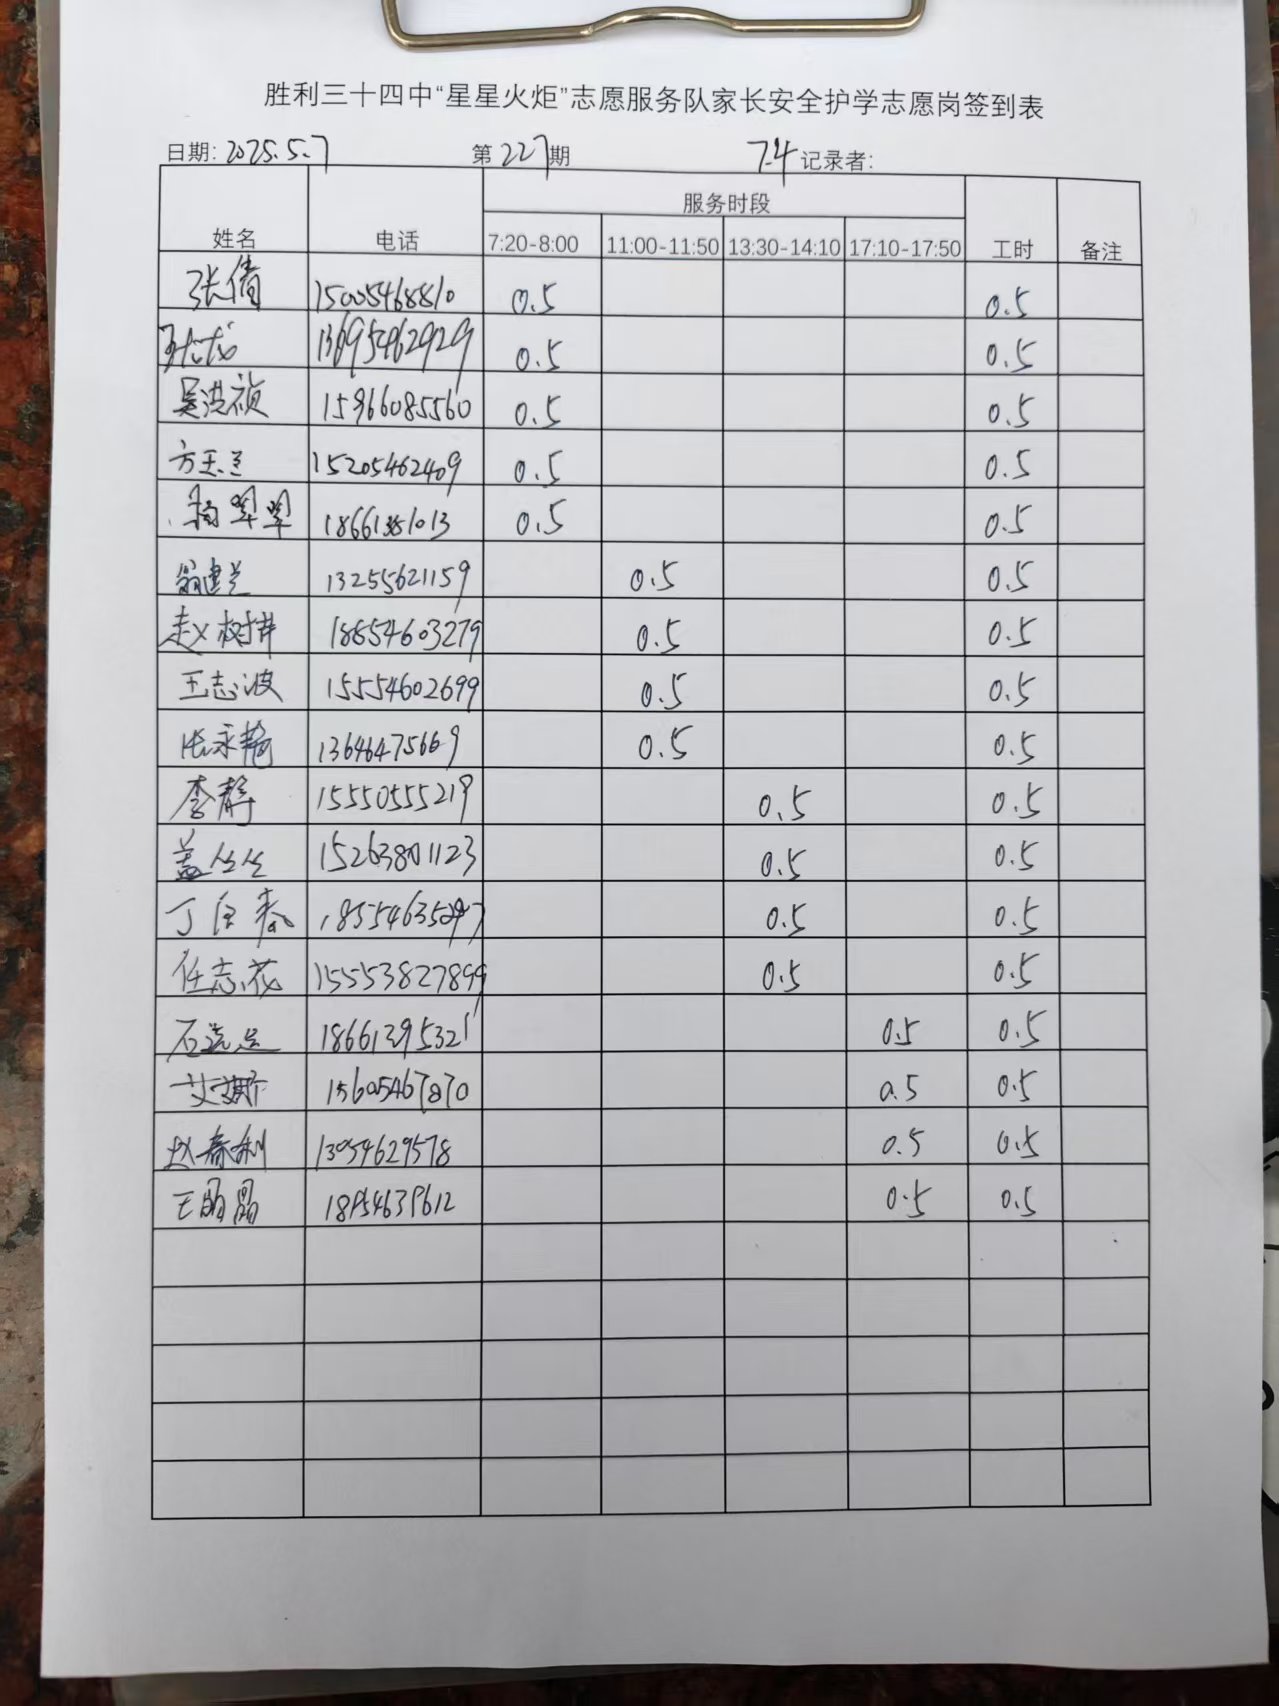 胜利三十四中“星星火炬”志愿服务队家长安全护学志愿岗签到表
日期: 2025.5.7 第227期 7.4 记录者:
服务时段
姓名 电话 7:20-8:00 11:00-11:50 13:30-14:10 17:10-17:50 工时 备注
张倩 15005468810 0.5 0.5
13695462929 0.5 0.5
吴洪祯 15966085560 0.5 0.5
方玉兰 15205462409 0.5 0.5
杨翠翠 0.5 0.5
翁建兰 13255621159 0.5 0.5
赵树井 18854603279 0.5 0.5
王志波 15554602699 0.5 0.5
张永艳 13646475669 0.5 0.5
李静 15550555219 0.5 0.5
盖丝丝 15263801123 0.5 0.5
0.5 0.5
任志花 15553827899 0.5 0.5
18661395321 0.5 0.5
15605467870 0.5 0.5
赵春利 13054629578 0.5 0.5
王晶晶 0.5 0.5